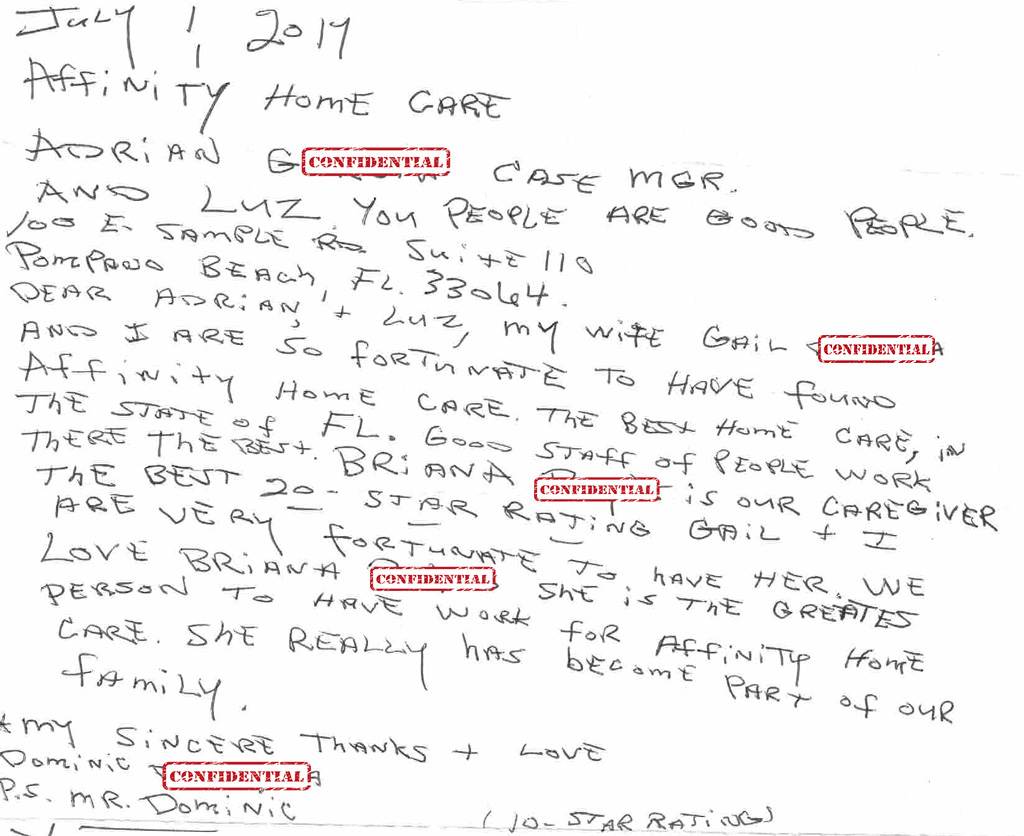 July 1, 2014
Affinity Home Care
Adrian G CONFIDENTIAL Case Mgr.
And Luz you people are good people.
100 E. Sample Rd Suite 110
Pompano Beach, FL. 33064.
Dear Adrian, + Luz, my wife Gail CONFIDENTIAL
and I are so fortunate to have found
Affinity Home Care. The best home care, in
the state of FL. Good staff of people work
there the best. Briana CONFIDENTIAL is our caregiver
the best 20-star rating Gail + I
are very fortunate to have her. We
love Briana CONFIDENTIAL She is the greates
person to have work for Affinity Home
Care. She really has become part of our
family.
my sincere thanks + love
Dominic CONFIDENTIAL
P.S. Mr. Dominic (10-star rating)